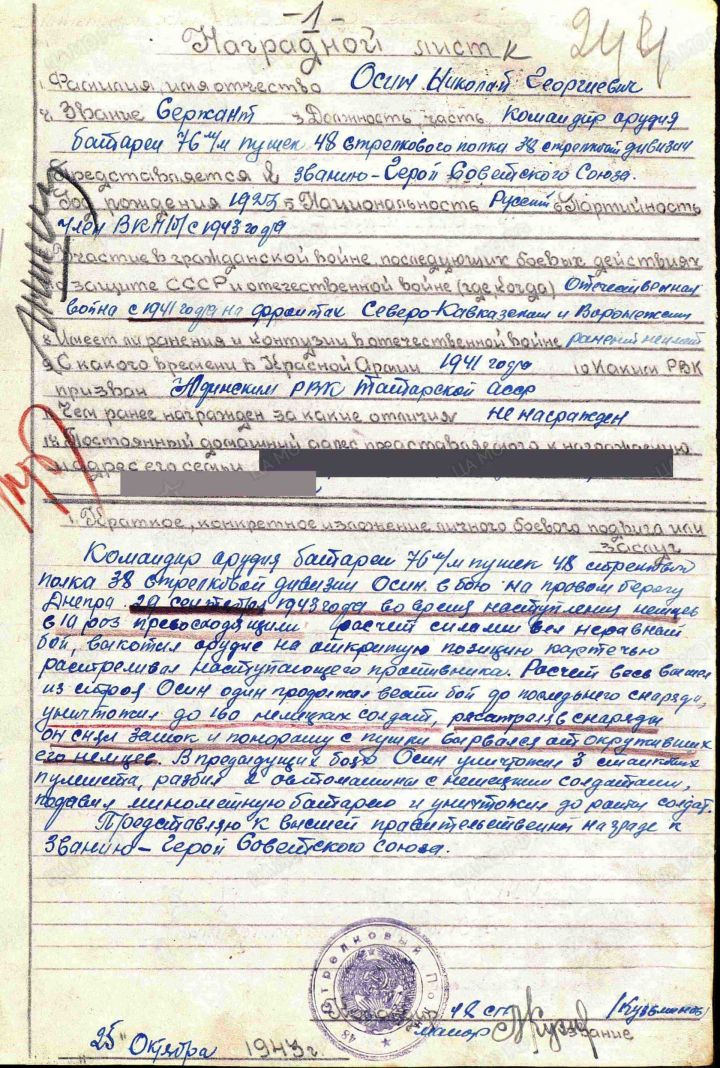 -1-
Наградной лист
1. Фамилия, имя отчество Осин Николай Георгиевич
2. Звание Сержант 3. Должность, часть Командир орудия
батареи 76 м/м пушек 48 стрелкового полка 38 стрелковой дивизии
Представляется к званию – Герой Советского Союза.
Год рождения 1923 5. Национальность Русский 6. Партийность
член ВКП/б/ с 1943 года
Участие в гражданской войне последующих боевых действиях
по защите СССР и отечественной войне (где, когда) Отечественная
война с 1941 года на фронтах Северо-Кавказском и Воронежском
8. Имеет ли ранения и контузии в отечественной войне ранений не имеет
9. С какого времени в Красной Армии 1941 года 10 Каким РВК
призван Юдинским РВК Татарской АССР
Чем ранее награжден за какие отличия не награжден
12. Постоянный домашний адрес представляемого к награждению
и адрес его семьи
1. Краткое, конкретное изложение личного боевого подвига или
заслуг
Командир орудия батареи 76 м/м пушек 48 стрелкового
полка 38 стрелковой дивизии Осин в бою на правом берегу
Днепра 29 сентября 1943 года во время наступления немцев
в 10 раз превосходящими расчет силами вел неравный
бой, выкотил орудие на открытую позицию картечью
расстреливал наступающего противника. Расчет весь вышел
из строя Осин один продолжал вести бой до последнего снаряда,
уничтожил до 160 немецких солдат, расстреляв снаряды
он снял замок и понораму с пушки вырвался от окруживших
его немцев. В предыдущих боях Осин уничтожил 3 станковых
пулемета, разбил 2 автомашины с немецкими солдатами,
подавил минометную батарею и уничтожил до роты солдат.
Представляю к высшей правительственной награде к
званию – Герой Советского Союза.
48 сп
майор /Кузьминов/
звание
48 Стрелковый Полк
"25" Октября 1943 г